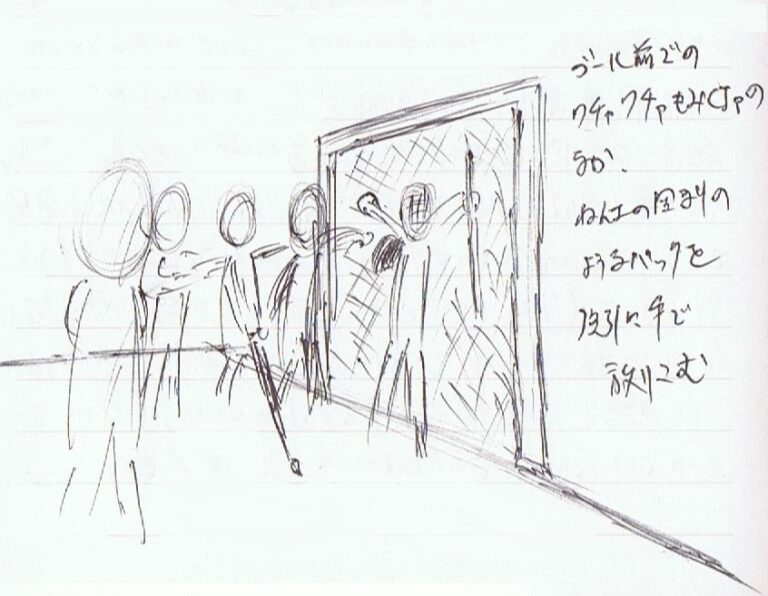 ゴール前での
ワチャワチャもみくちゃの
なか、
ねん土の固まりの
ようなパックを
強引に手で
放りこむ